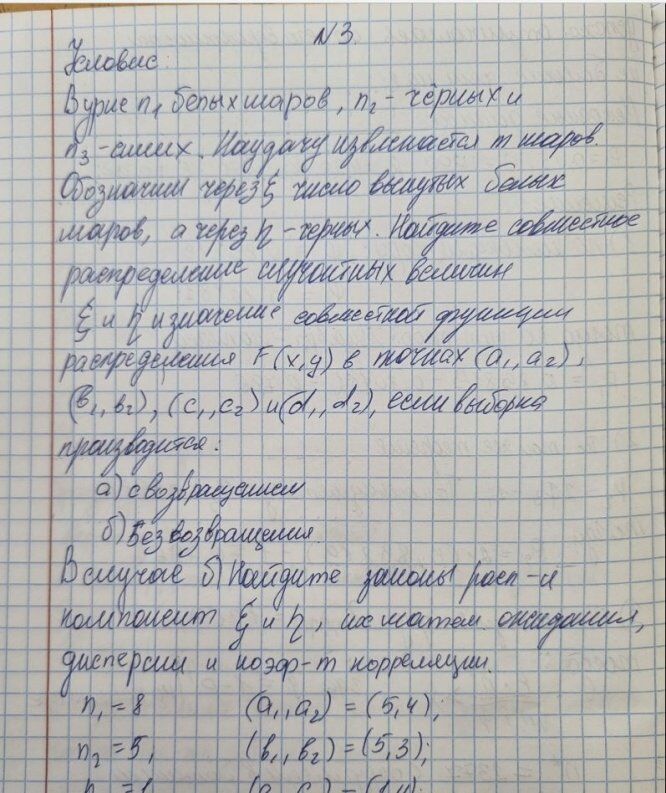 N3.
Условие:
В урне n₁ белых шаров, n₂ - чёрных и
n₃ - синих. Наудачу извлекается m шаров.
Обозначим через ξ число вынутых белых
шаров, а через η - черных. Найдите совместное
распределение случайных величин
ξ и η и значение совместной функции
распределения F(x,y) в точках (a₁, a₂),
(в₁, в₂), (c₁, c₂) и (d₁, d₂), если выборка
производится:
а) с возвращением
б) Без возвращения.
В случае б) Найдите законы расп-я
компонент ξ и η, их матем. ожидания,
дисперсии и коэф-т корреляции.
n₁ = 8 (a₁, a₂) = (5,4);
n₂ = 5, (в₁, в₂) = (5,3);